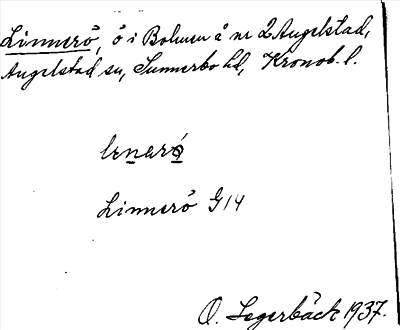 Linnerö, ö i Bolmen å nr 2 Augelstad,
Augelstad sn, Sunnerbo hd, Kronob. l.
lenarö
Linnerö G14
O. Segerbäck 1937.